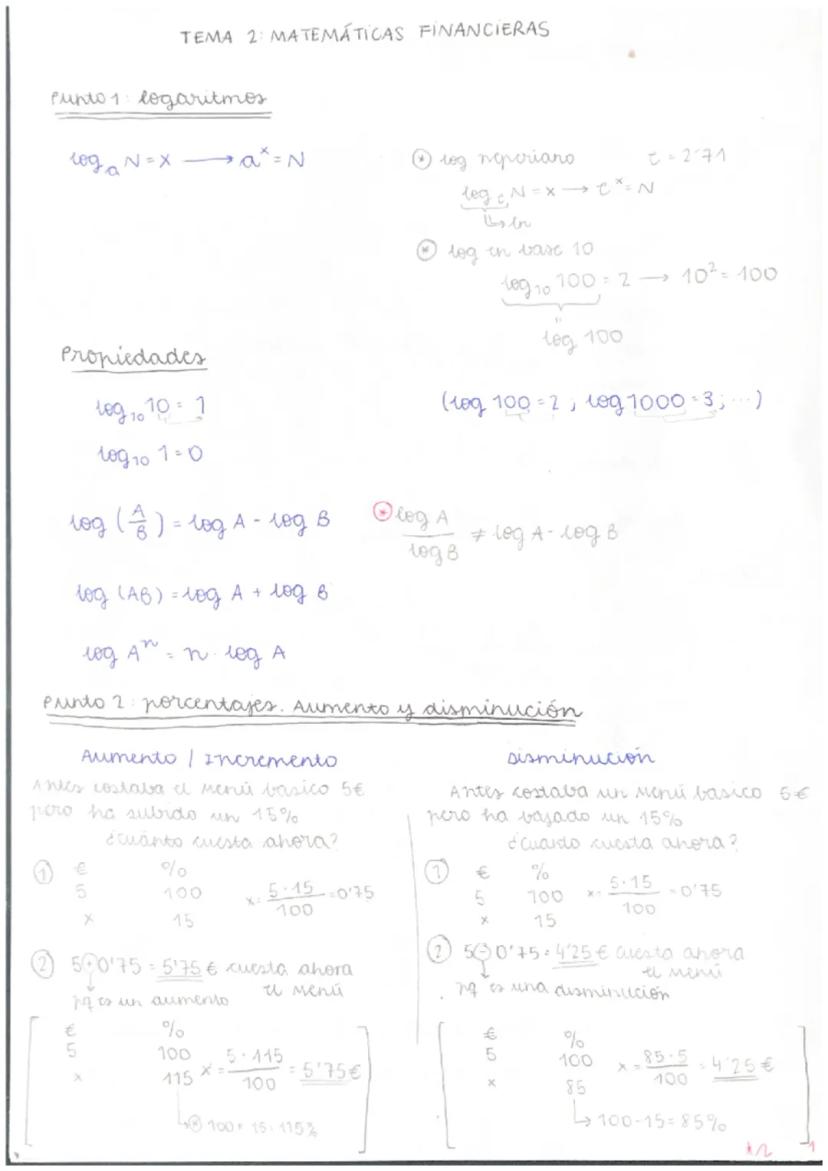 TEMA 2: MATEMÁTICAS FINANCIERAS
Punto 1: logaritmos
log_a N = x → a^x = N
* log neperiano e = 2'71
log_e N = x → e^x = N
↳ ln
* log en base 10
log_10 100 = 2 → 10^2 = 100
"
log 100
Propiedades
log_10 10 = 1 (log 100 = 2, log 1000 = 3; ...)
log_10 1 = 0
log (A/B) = log A - log B * log A / log B ≠ log A - log B
log (AB) = log A + log B
log A^n = n · log A
Punto 2: porcentajes. Aumento y disminución
Aumento / Incremento
Antes costaba el menú básico 5€
pero ha subido un 15%
¿cuánto cuesta ahora?
① € %
5 100 x = 5·15/100 = 0'75
x 15
② 5 + 0'75 = 5'75 € cuesta ahora
el menú
↓ pq es un aumento
€ %
5 100
x 115 x = 5·115/100 = 5'75€
↳ * 100 + 15 = 115%
Disminución
Antes costaba un menú básico 5€
pero ha bajado un 15%
¿Cuanto cuesta ahora?
① € %
5 100 x = 5·15/100 = 0'75
x 15
② 5 - 0'75 = 4'25 € cuesta ahora
el menú
↓ pq es una disminución
€ %
5 100 x = 85·5/100 = 4'25 €
x 85
↳ 100 - 15 = 85%
1